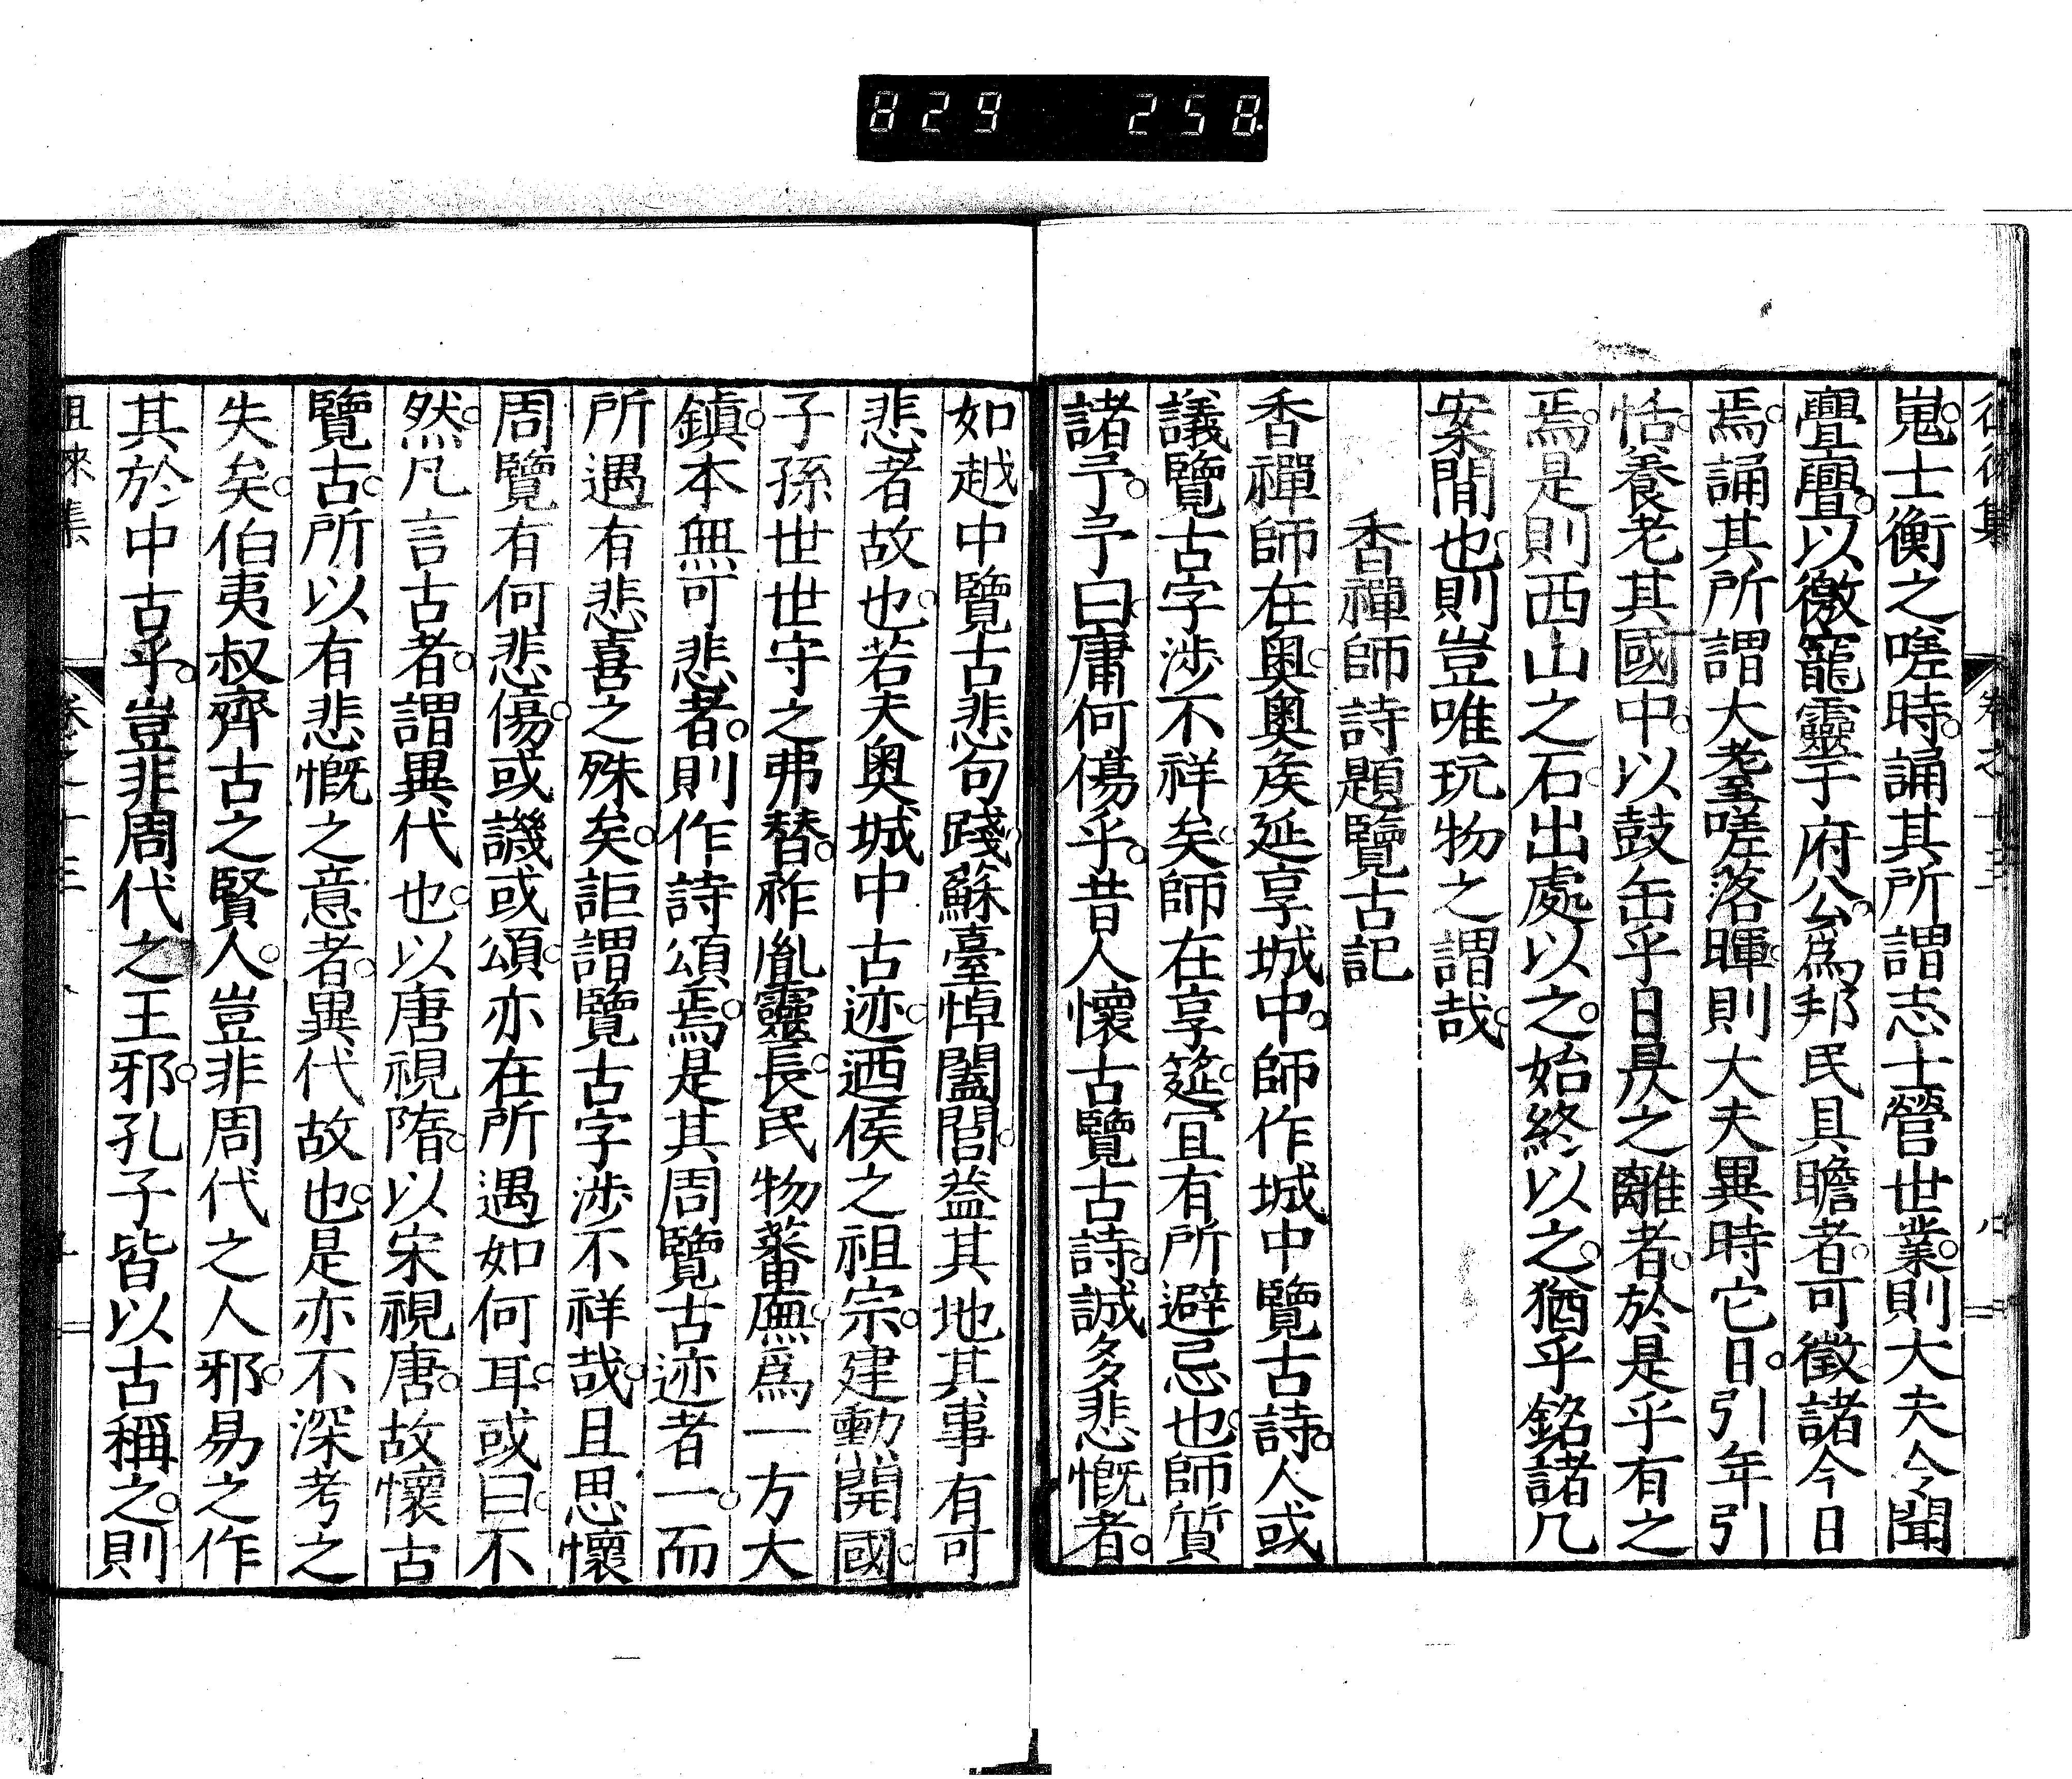 829 258
嵬士衡之嗟時誦其所謂志士營世業則大夫令聞
亹亹以徼寵靈于府公爲邦民具瞻者可徵諸今日
焉誦其所謂大耋嗟落暉則大夫異時它日引年引
恬養老其國中以鼓缶乎日昃之離者於是乎有之
焉是則西山之石出處以之始終以之猶乎銘諸几
案間也則豈唯玩物之謂哉
香禪師詩題覽古記
香禪師在奧奧矦延享城中師作城中覽古詩人或
議覽古字涉不祥矣師在享筵宜有所避忌也師質
諸予予曰庸何傷乎昔人懷古覽古詩誠多悲慨者
如越中覽古悲句踐蘇臺悼闔閭益其地其事有可
悲者故也若夫奧城中古迹迺侯之祖宗建勳開國
子孫世世守之弗替祚胤靈長民物蕃廡爲一方大
鎮本無可悲者則作詩頌焉是其周覽古迹者一而
所遇有悲喜之殊矣詎謂覽古字涉不祥哉且思懷
周覽有何悲傷或譏或頌亦在所遇如何耳或曰不
然凡言古者謂異代也以唐視隋以宋視唐故懷古
覽古所以有悲慨之意者異代故也是亦不深考之
失矣伯夷叔齊古之賢人豈非周代之人邪易之作
其於中古乎豈非周代之王邪孔子皆以古稱之則
徂徠集 卷之十三